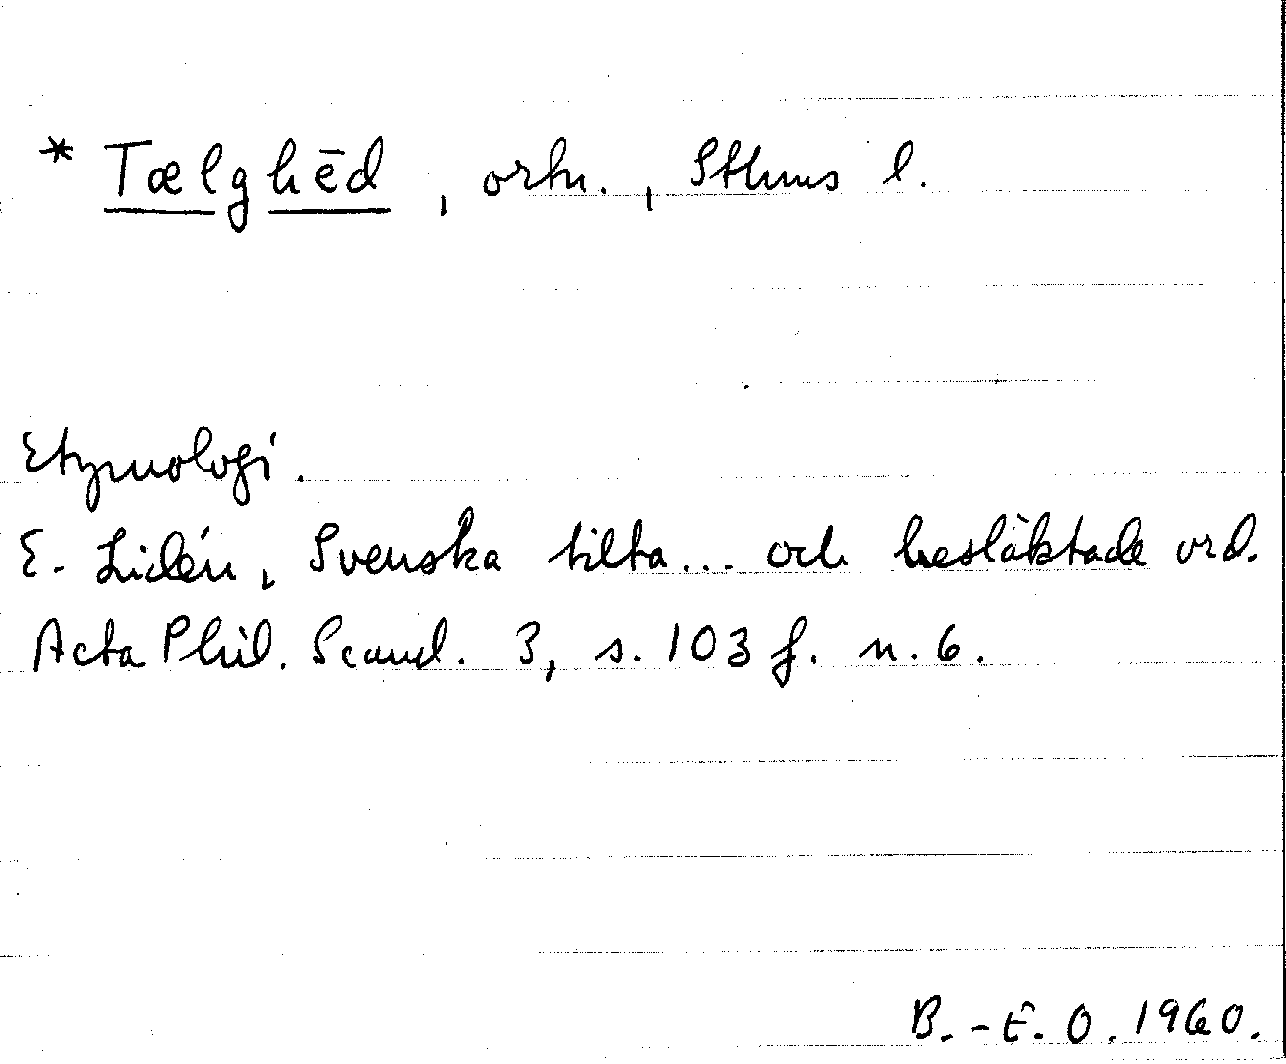 * Tælghēd, ortn., Sthms l.
Etymologi.
E. Lidén, Svenska tilta... och besläktade ord.
Acta Phil. Scand. 3, s. 103 f. n. 6.
B.-E. O. 1960.